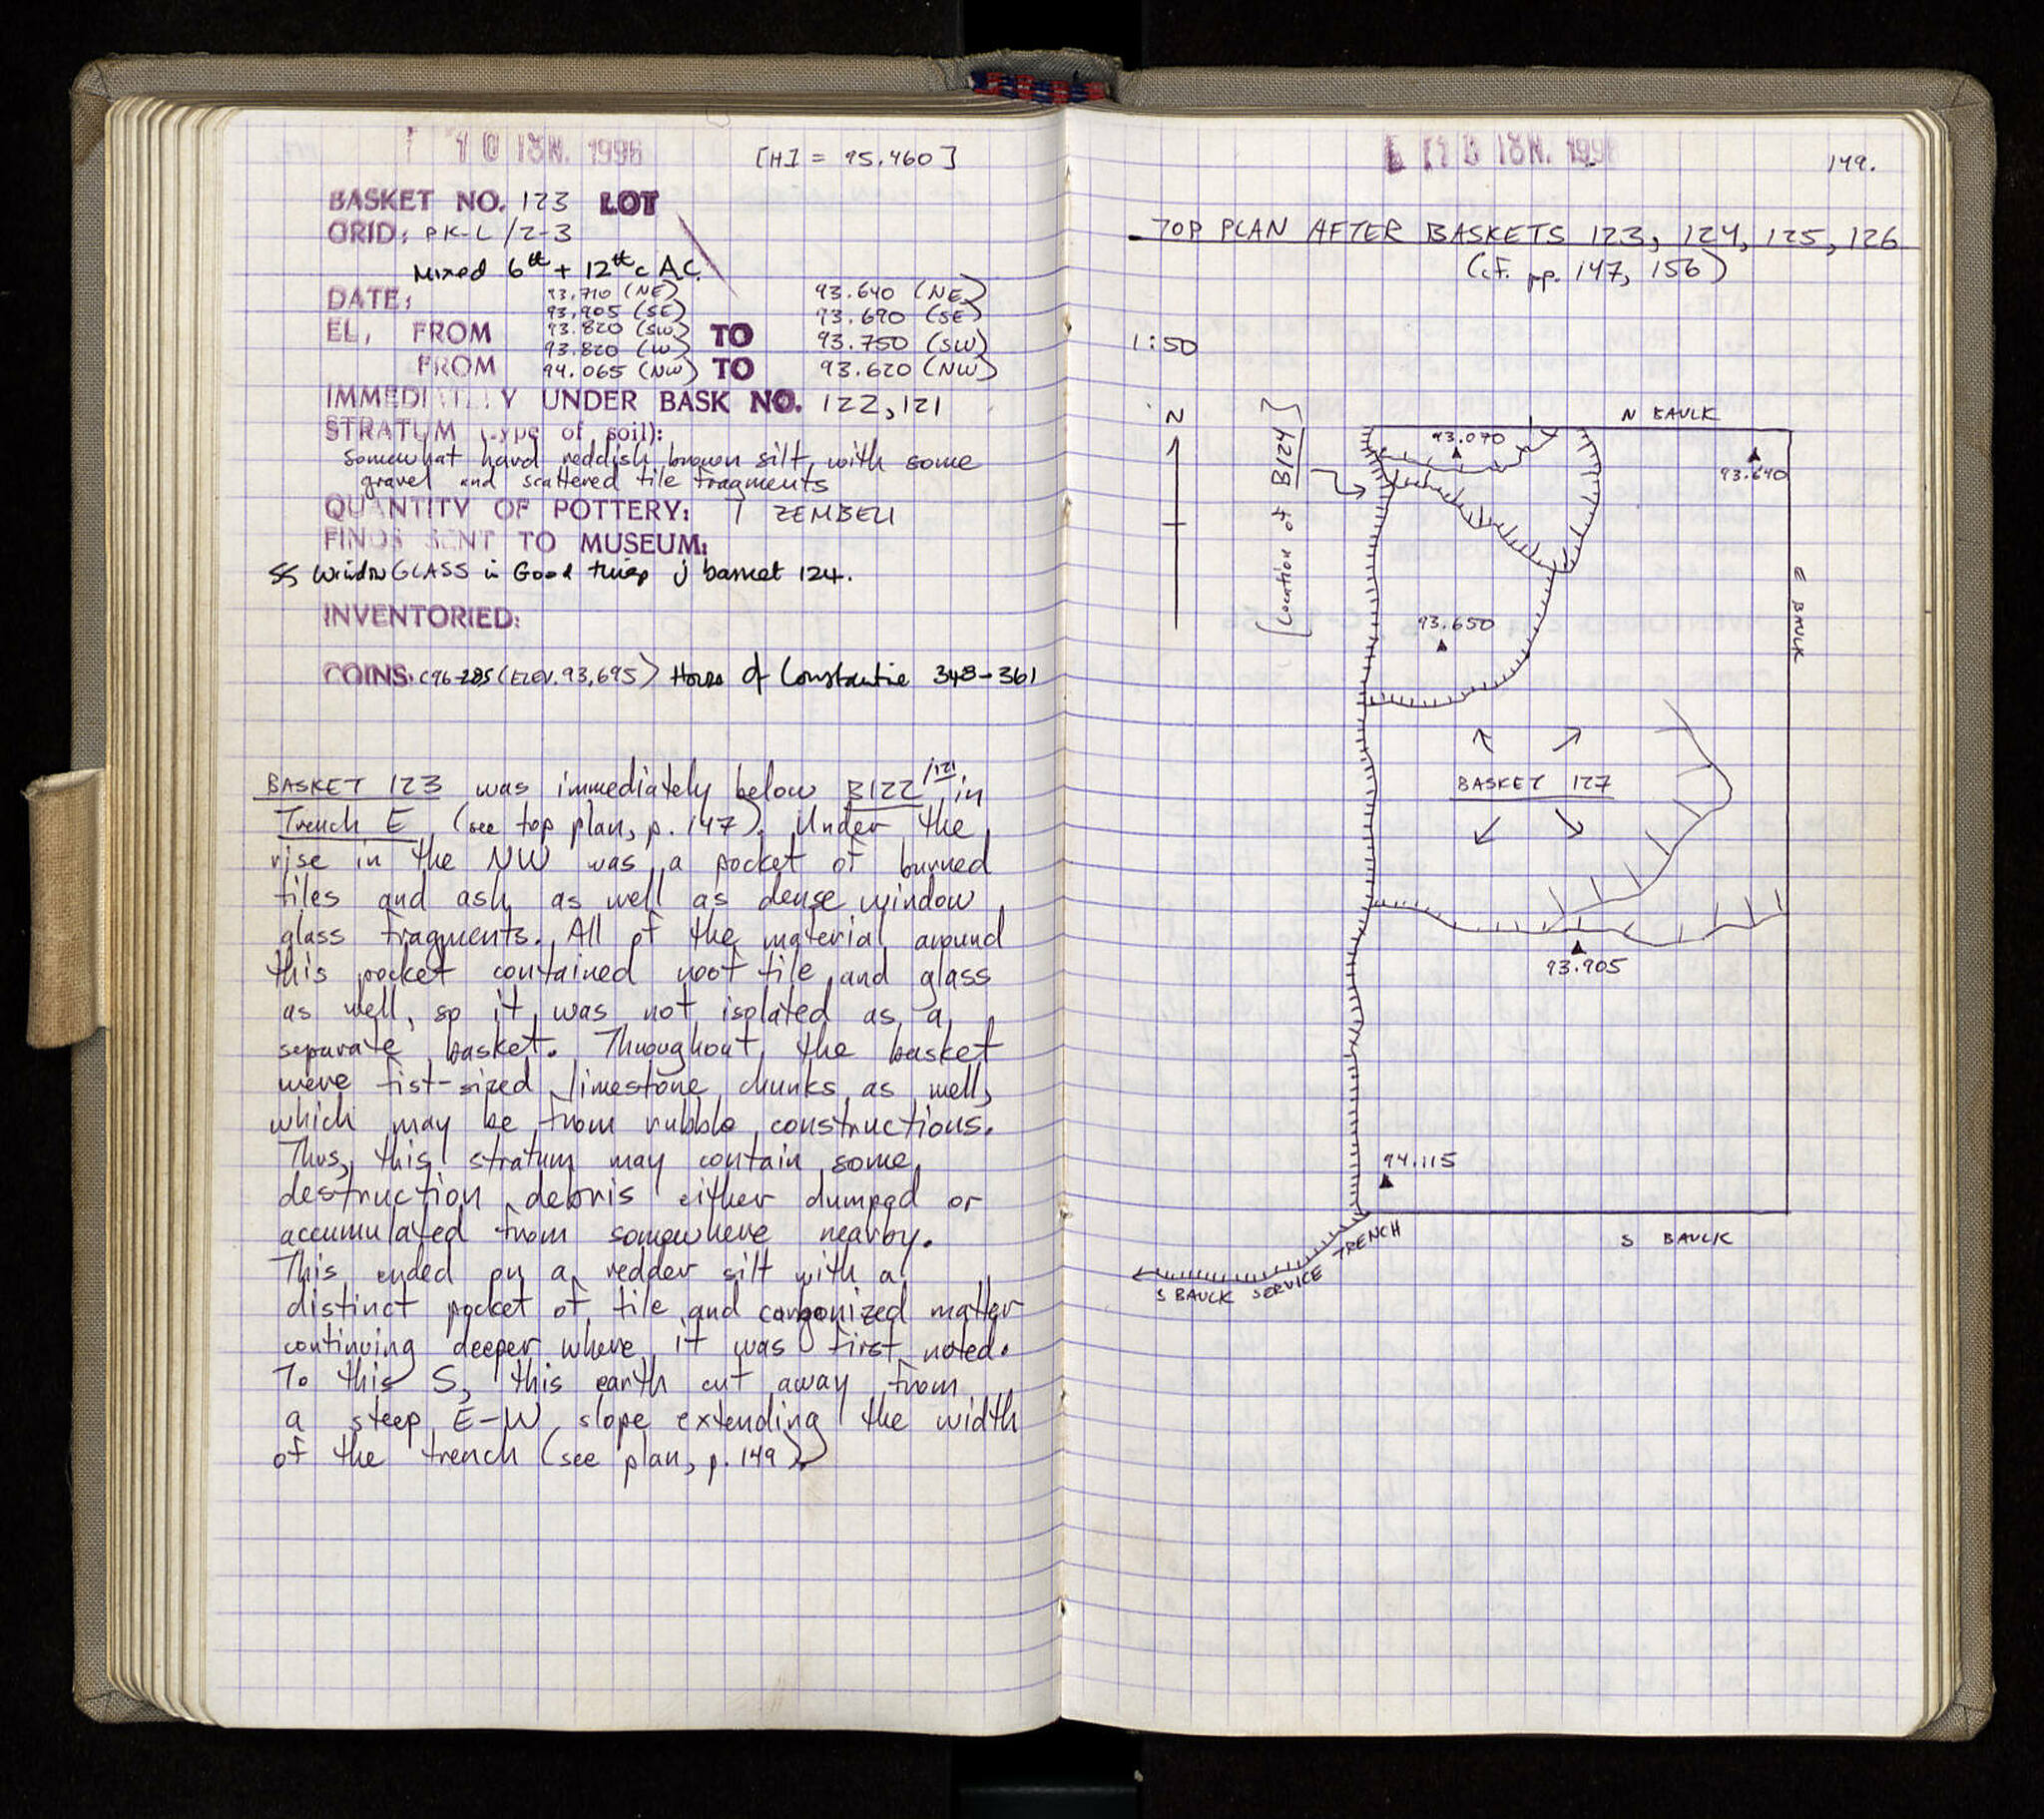 10 IUN. 1996
[HI = 95.460]
BASKET NO. 123 LOT
GRID: PK-L/2-3
Mixed 6th + 12th c A.C.
DATE:
93.710 (NE) 93.640 (NE)
93.905 (SE) 93.690 (SE)
EL, FROM 93.820 (SW) TO
93.820 (W) 93.750 (SW)
FROM 94.065 (NW) TO 93.620 (NW)
IMMEDIATELY UNDER BASK NO. 122, 121
STRATUM (type of soil):
somewhat hard reddish brown silt with some
gravel and scattered tile fragments
QUANTITY OF POTTERY: 1 ZEMBELI
FINDS SENT TO MUSEUM:
Window GLASS in Good basket 124.
INVENTORIED:
COINS: C96-285 (ELEV. 93.695) House of Constantine 348-361
BASKET 123 was immediately below B122/121 in
Trench E (see top plan, p. 147). Under the
rise in the NW was a pocket of burned
tiles and ash as well as dense window
glass fragments. All of the material around
this pocket contained roof tile and glass
as well, so it was not isolated as a
separate basket. Throughout the basket
were fist-sized limestone chunks as well,
which may be from rubble constructions.
Thus, this stratum may contain some
destruction debris either dumped or
accumulated from somewhere nearby.
This ended on a redder silt with a
distinct pocket of tile and carbonized matter
continuing deeper where it was first noted.
To this S, this earth cut away from
a steep E-W slope extending the width
of the trench (see plan, p. 149).
10 IUN. 1996
149.
TOP PLAN AFTER BASKETS 123, 124, 125, 126
(cf. pp. 147, 156)
1:50
N
[Location of B124]
N BAULK
93.070
93.640
E BAULK
93.650
BASKET 127
93.905
94.115
S BAULK
S BAULK SERVICE TRENCH